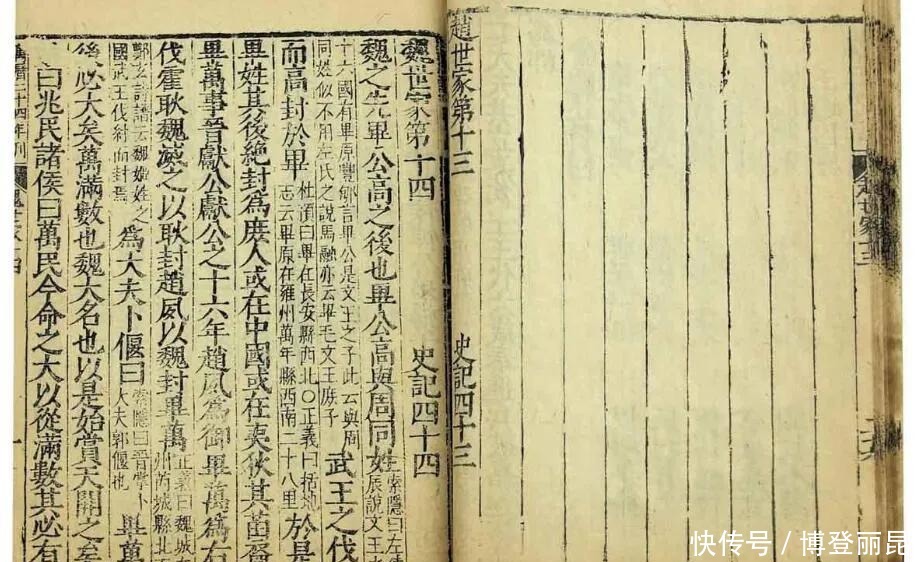 趙世家十三
趙世家第十三 史記四十三
魏世家第十四 史記四十四
魏之先畢公高之後也畢公高與周同姓
索隱曰左傳
辰說文王
十六國有畢原豐郇言畢公是文王之子此云與周
同姓似不用左氏之說馬融亦云畢毛文王庶子
武王之伐
而高封於畢
杜預曰畢在長安縣西北〇正義曰括地
志云畢原在雍州萬年縣西南二十八里
於是
畢姓其後絕封為庶人或在中國或在夷狄其苗裔
畢萬事晉獻公獻公之十六年趙夙為御畢萬為右
伐霍耿魏滅之以耿封趙夙以魏封畢萬
正義曰魏城在
州芮城縣北
鄭玄詩譜云魏姬姓之
國武王伐紂而封焉
為大夫卜偃曰
索隱曰晉掌卜
大夫郭偃也
畢萬
後必大矣萬滿數也魏大名也以是始賞天開之矣
曰兆民諸侯曰萬民今命之大以從滿數其必有
萬曆二十四年刊 魏世家十四 一
快传号 / 博登丽昆